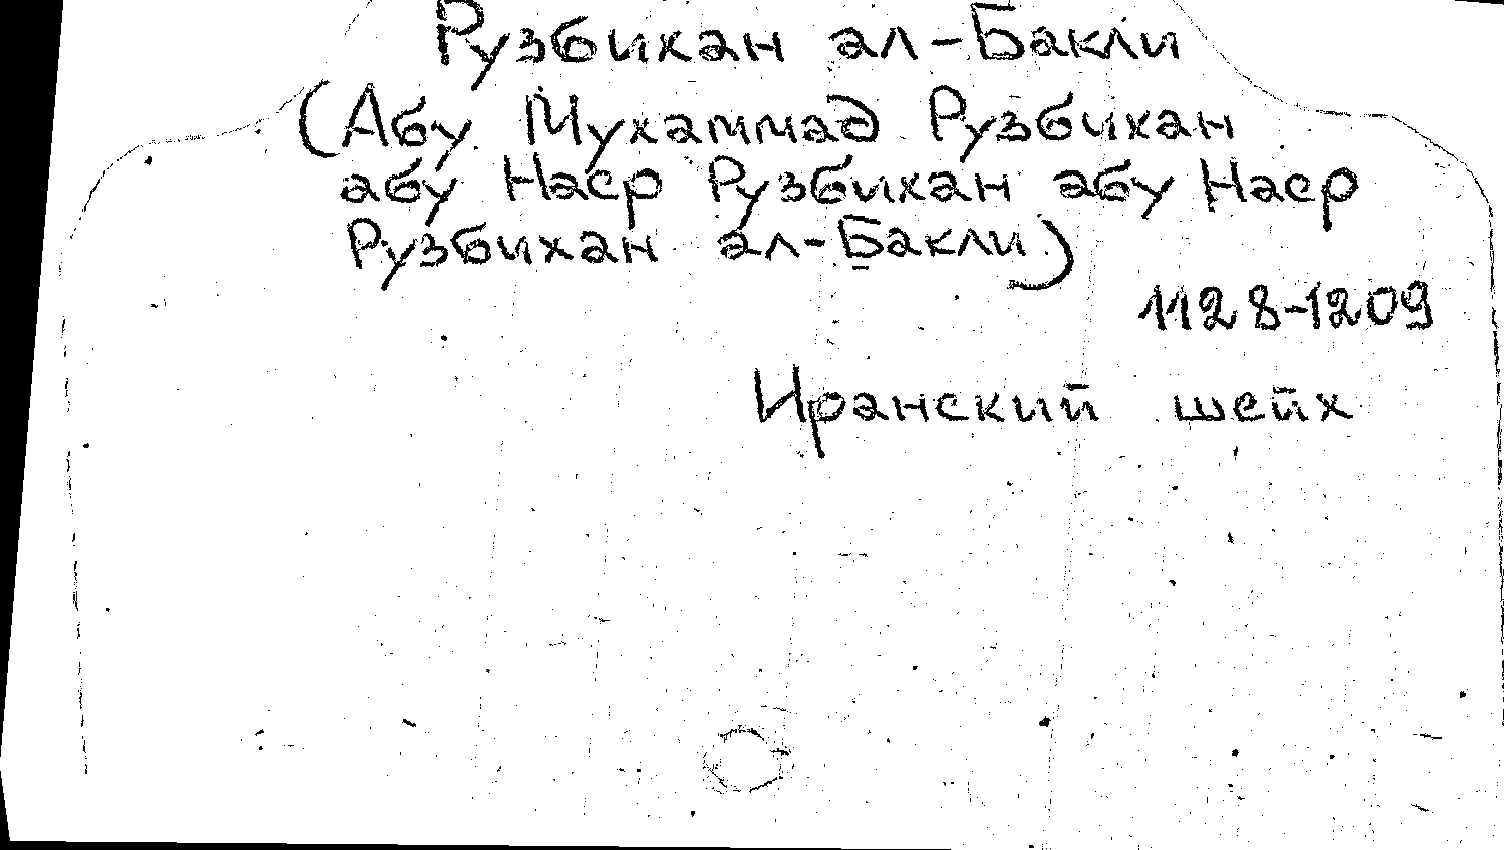 Рузбихан ал-Бакли
(Абу Мухаммад Рузбихан
абу Наср Рузбихан абу Наср
Рузбихан ал-Бакли)
1128-1209
Иранский шейх